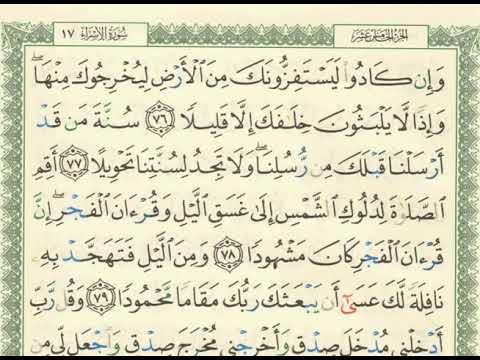 الجزء الخامس عشر
سورة الإسراء ١٧
وَإِن كَادُوا۟ لَيَسْتَفِزُّونَكَ مِنَ ٱلْأَرْضِ لِيُخْرِجُوكَ مِنْهَا ۖ
وَإِذًا لَّا يَلْبَثُونَ خِلَـٰفَكَ إِلَّا قَلِيلًا ٧٦ سُنَّةَ مَن قَدْ
أَرْسَلْنَا قَبْلَكَ مِن رُّسُلِنَا ۖ وَلَا تَجِدُ لِسُنَّتِنَا تَحْوِيلًا ٧٧ أَقِمِ
ٱلصَّلَوٰةَ لِدُلُوكِ ٱلشَّمْسِ إِلَىٰ غَسَقِ ٱلَّيْلِ وَقُرْءَانَ ٱلْفَجْرِ ۖ إِنَّ
قُرْءَانَ ٱلْفَجْرِ كَانَ مَشْهُودًا ٧٨ وَمِنَ ٱلَّيْلِ فَتَهَجَّدْ بِهِۦ
نَافِلَةً لَّكَ عَسَىٰٓ أَن يَبْعَثَكَ رَبُّكَ مَقَامًا مَّحْمُودًا ٧٩ وَقُل رَّبِّ
أَدْخِلْنِى مُدْخَلَ صِدْقٍ وَأَخْرِجْنِى مُخْرَجَ صِدْقٍ وَٱجْعَل لِّى مِن